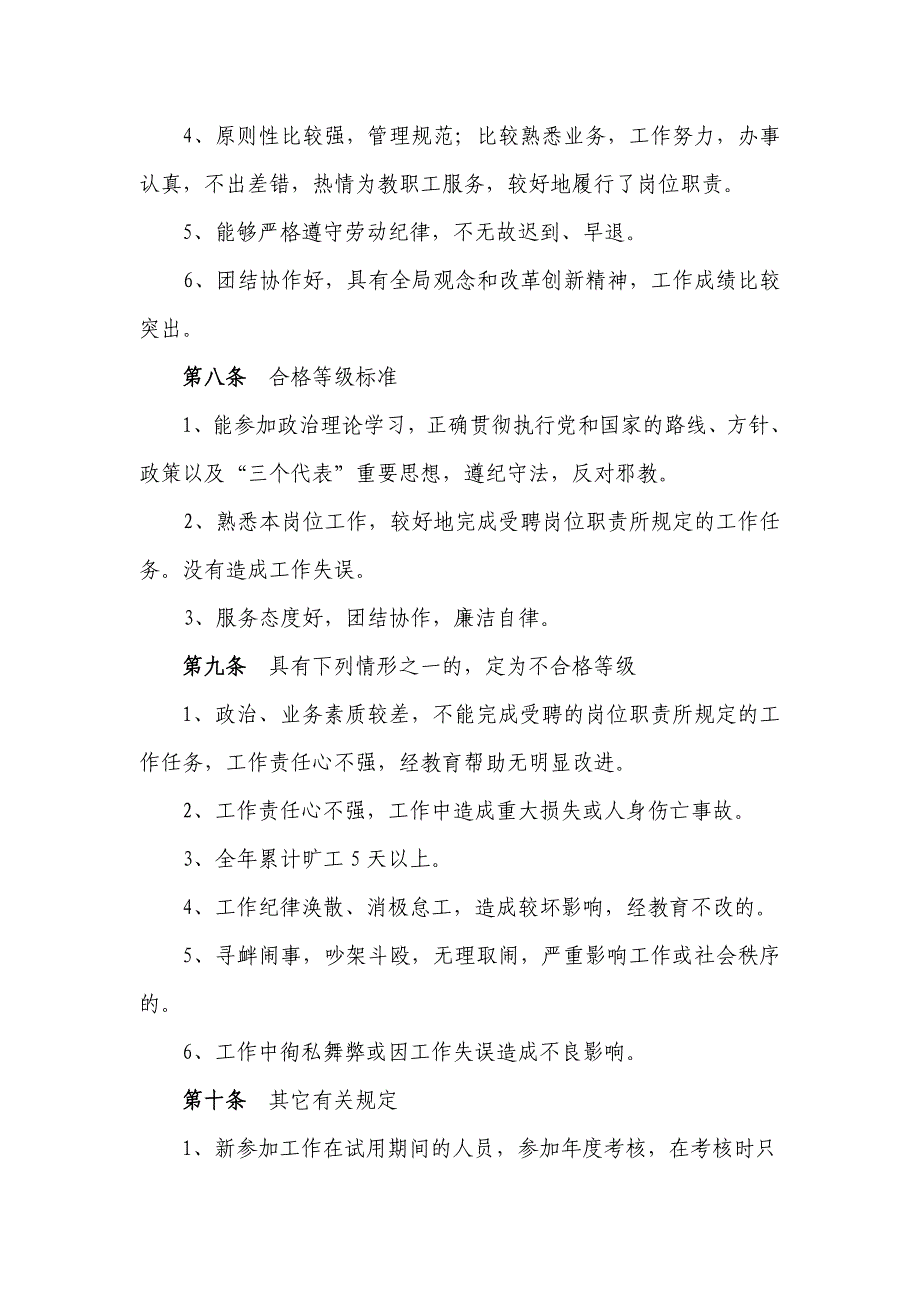 4、原则性比较强，管理规范；比较熟悉业务，工作努力，办事
认真，不出差错，热情为教职工服务，较好地履行了岗位职责。
5、能够严格遵守劳动纪律，不无故迟到、早退。
6、团结协作好，具有全局观念和改革创新精神，工作成绩比较
突出。
第八条　合格等级标准
1、能参加政治理论学习，正确贯彻执行党和国家的路线、方针、
政策以及“三个代表”重要思想，遵纪守法，反对邪教。
2、熟悉本岗位工作，较好地完成受聘岗位职责所规定的工作任
务。没有造成工作失误。
3、服务态度好，团结协作，廉洁自律。
第九条　具有下列情形之一的，定为不合格等级
1、政治、业务素质较差，不能完成受聘的岗位职责所规定的工
作任务，工作责任心不强，经教育帮助无明显改进。
2、工作责任心不强，工作中造成重大损失或人身伤亡事故。
3、全年累计旷工 5 天以上。
4、工作纪律涣散、消极怠工，造成较坏影响，经教育不改的。
5、寻衅闹事，吵架斗殴，无理取闹，严重影响工作或社会秩序
的。
6、工作中徇私舞弊或因工作失误造成不良影响。
第十条　其它有关规定
1、新参加工作在试用期间的人员，参加年度考核，在考核时只